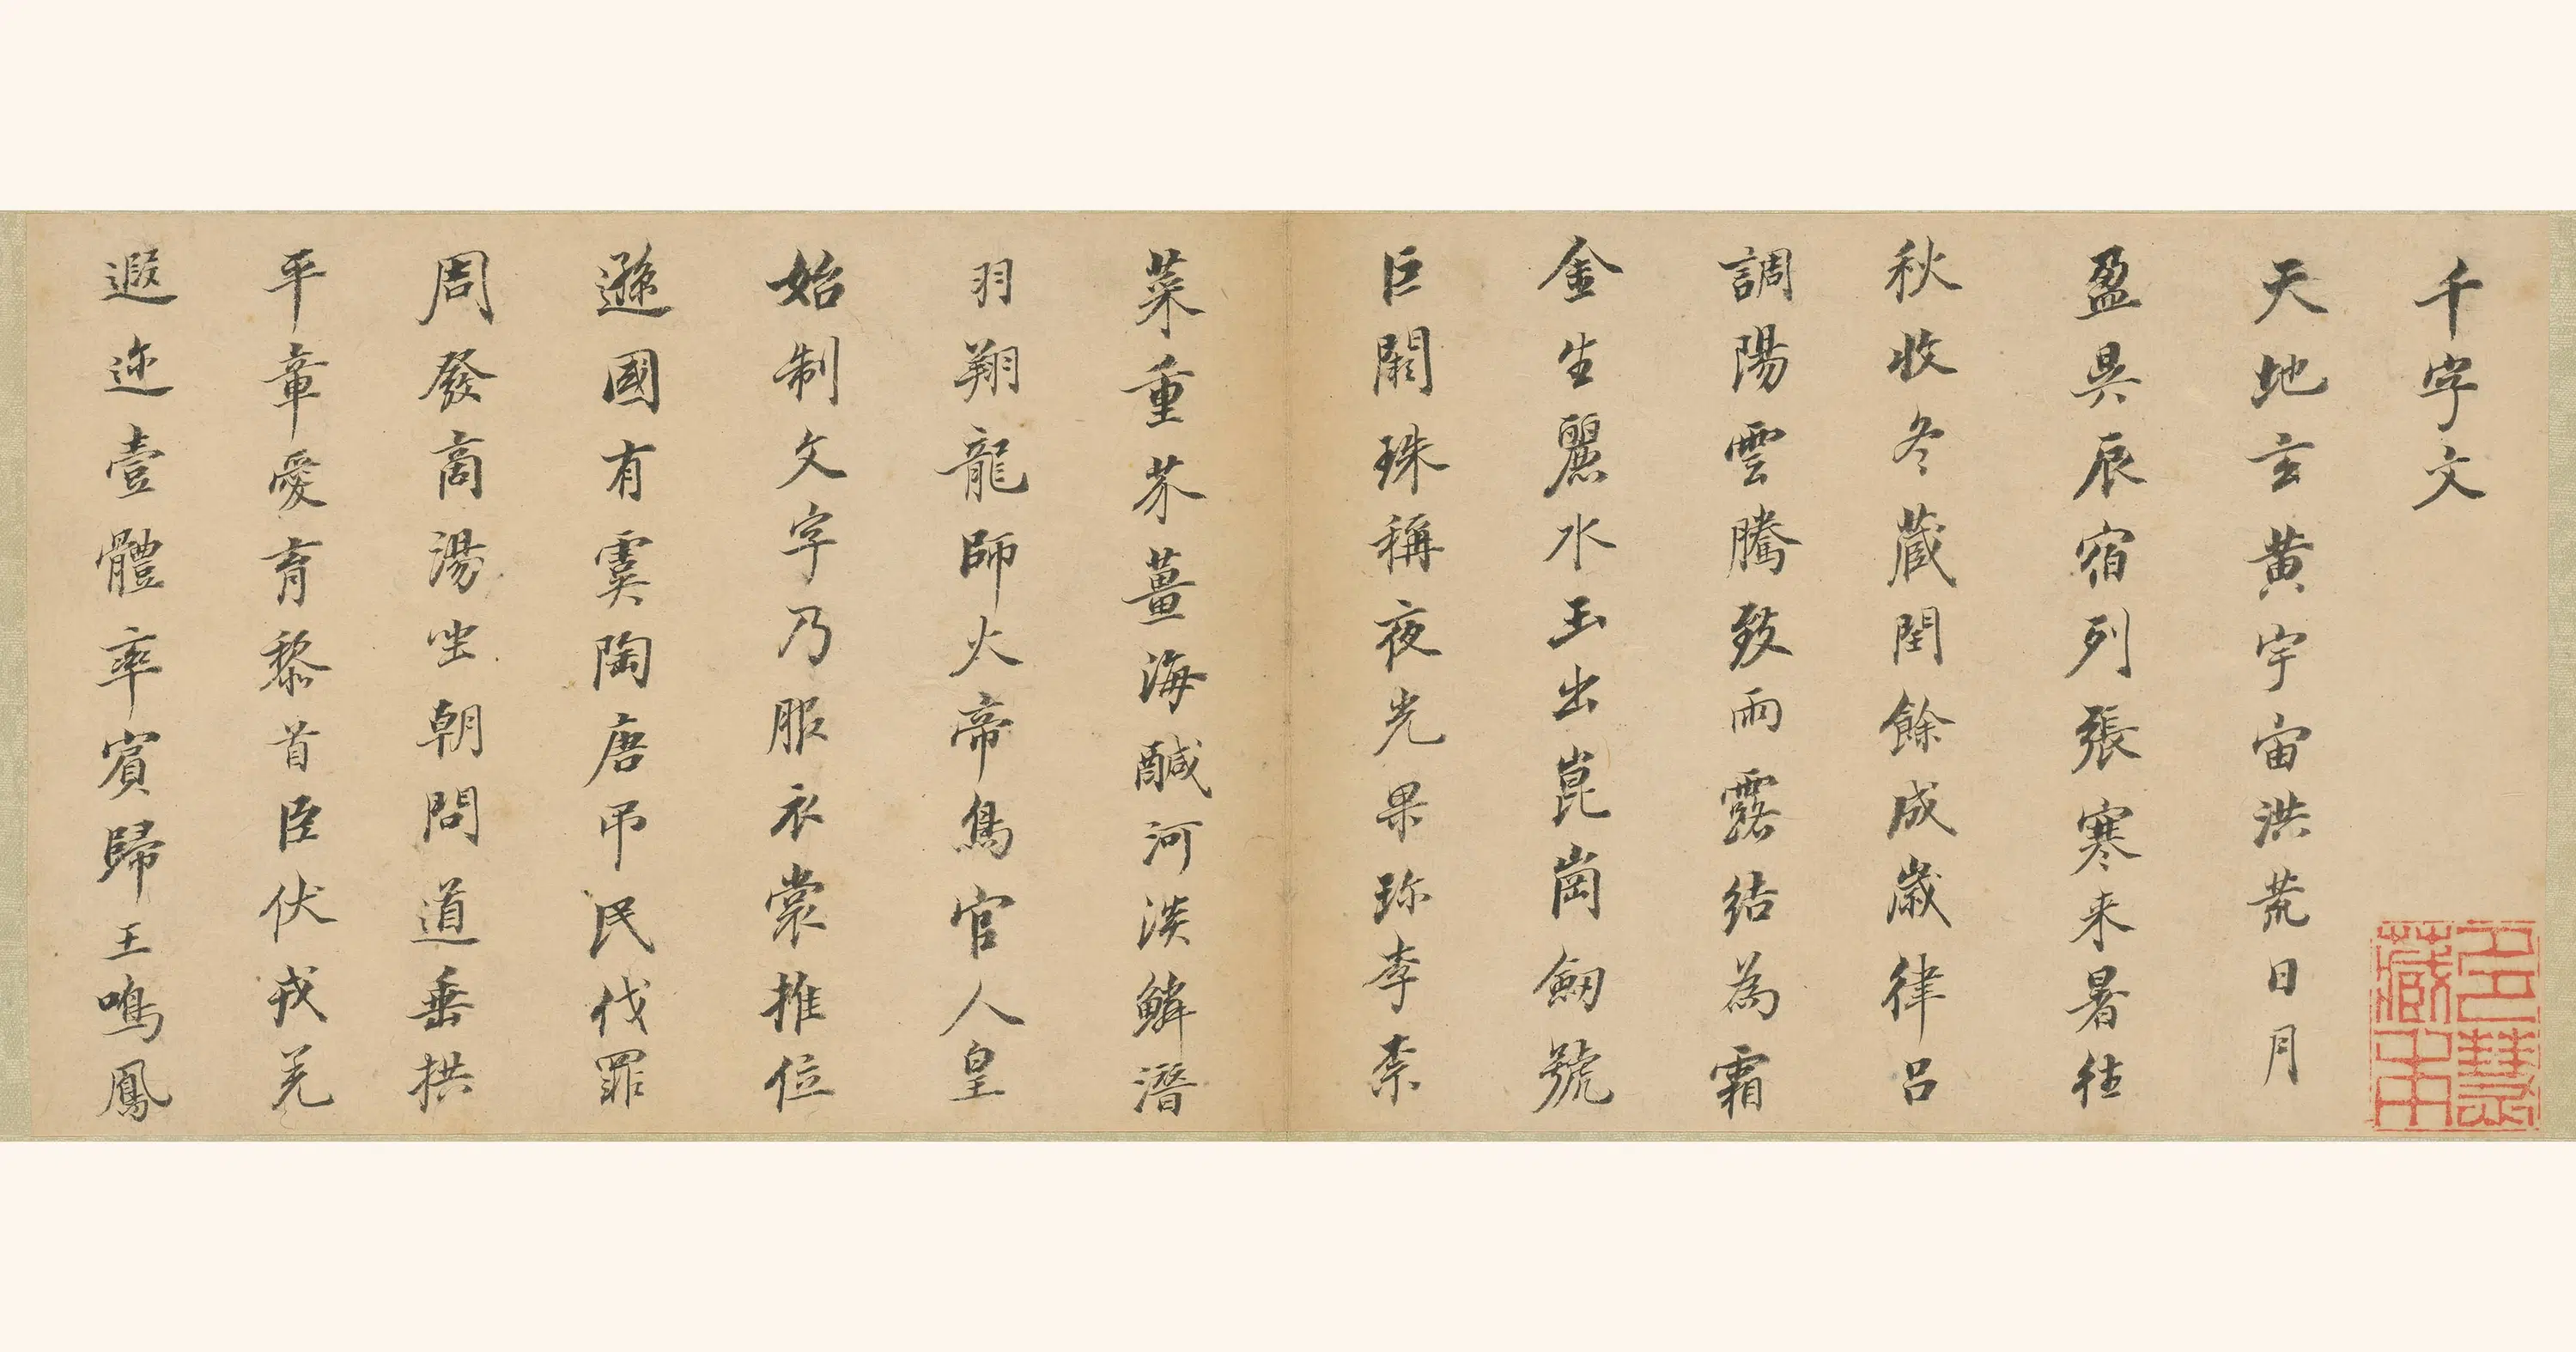 千字文
天地玄黄宇宙洪荒日月
盈昃辰宿列張寒来暑往
秋收冬蔵閏餘成歲律呂
調陽雲騰致雨露結為霜
金生麗水玉出崑崗劒號
巨闕珠稱夜光果珎李柰
菜重芥薑海鹹河淡鱗潛
羽翔龍師火帝鳥官人皇
始制文字乃服衣裳推位
遜國有虞陶唐吊民伐罪
周發商湯坐朝問道垂拱
平章愛育黎首臣伏戎羌
遐迩壹體率賓歸王鳴鳳